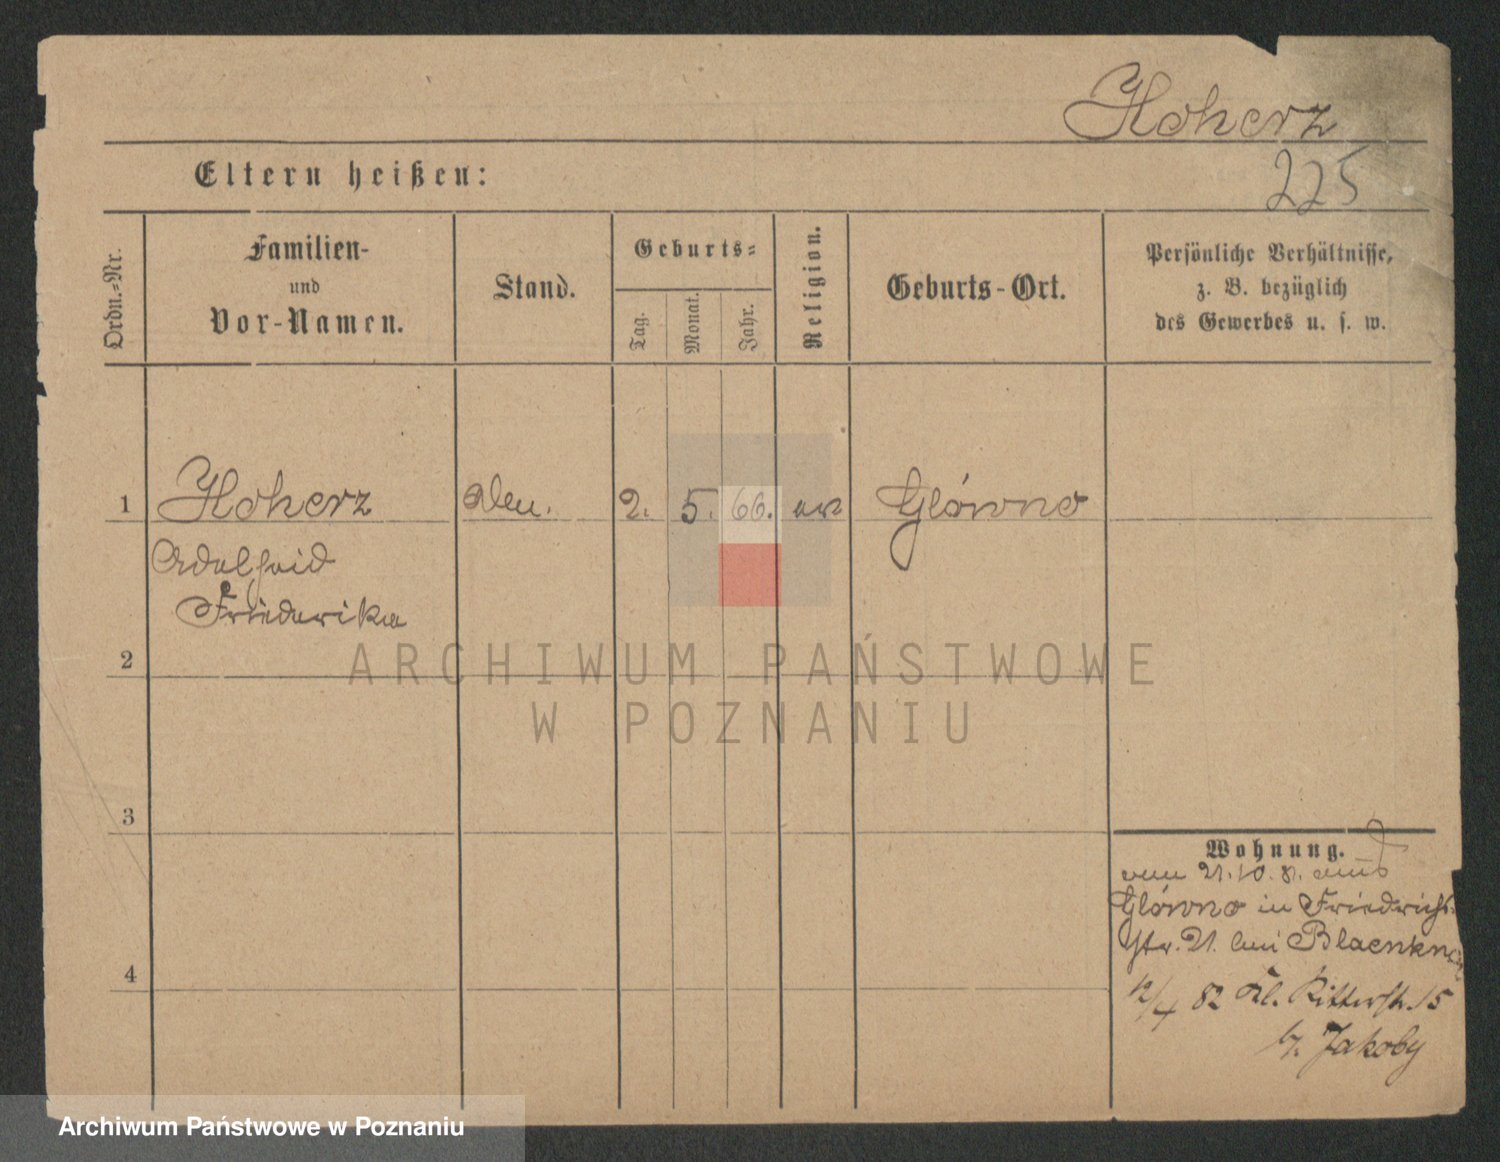 Hoherz
225
Eltern heißen:
Ordn.-Nr.
Familien-
und
Vor-Namen.
Stand.
Geburts-
Tag.
Monat.
Jahr.
Religion.
Geburts-Ort.
Persönliche Verhältnisse,
z. B. bezüglich
des Gewerbes u. s. w.
1 Hoherz 2. 5. 66. Glówno
Adelheid
Friederike
2
ARCHIWUM PAŃSTWOWE
W POZNANIU
3
4
Wohnung.
21.10.81. aus
Glówno in Friedrichs-
str. 21. bei
12/4 82 Kl. Ritterstr. 15
b. Jakoby
Archiwum Państwowe w Poznaniu